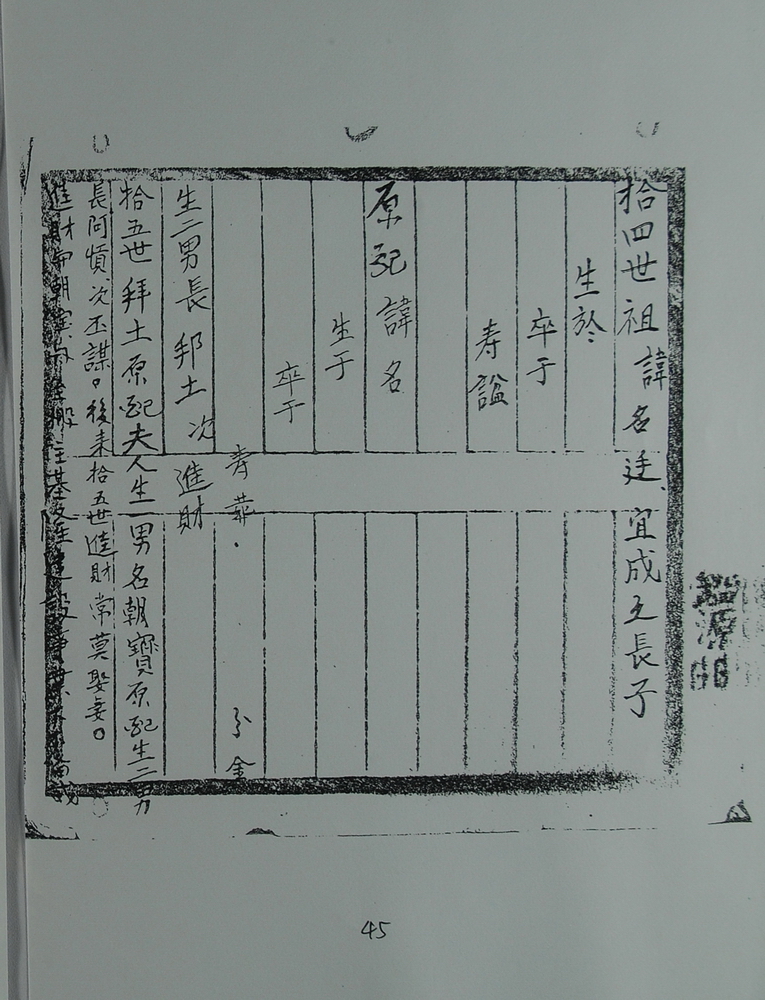 拾四世祖諱名廷宜成之長子
生於
卒于
寿謚
原配諱名
生于
卒于
寿葬
分金
生二男長邦土次進財
拾五世拜土原配夫人生一男名朝寶原配生二男
長阿憤次丕謀。後來拾五世進財常莫娶妻。
進財 朝
45